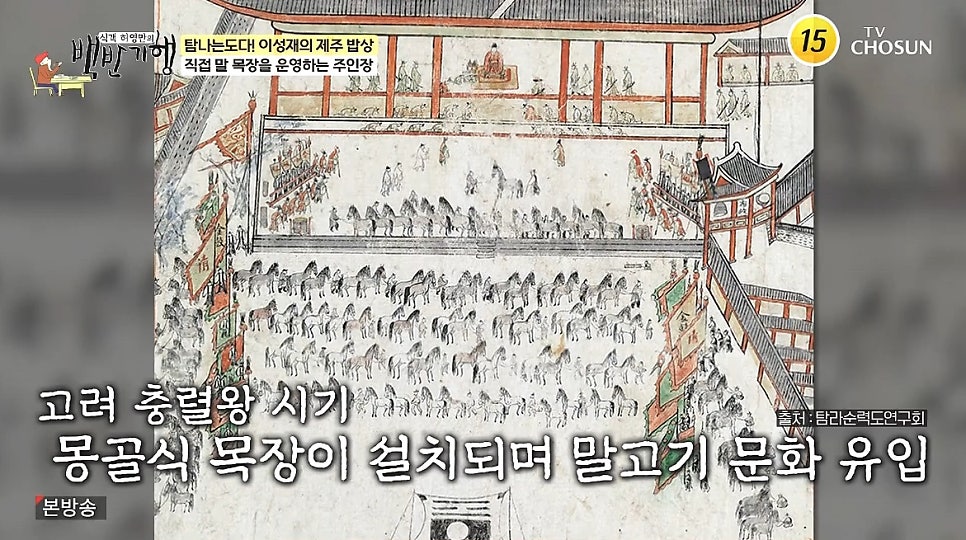 식객 허영만의
백반기행
탐나는도다! 이성재의 제주 밥상
직접 말 목장을 운영하는 주인장
15
TV
CHOSUN
고려 충렬왕 시기
출처 : 탐라순력도연구회
몽골식 목장이 설치되며 말고기 문화 유입
본방송